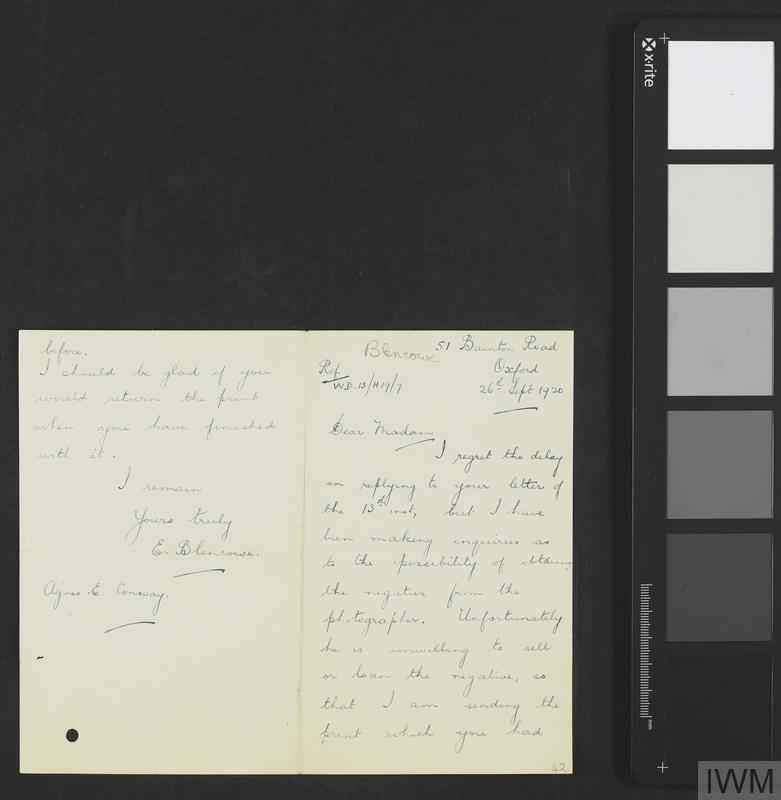 Blencowe
51 Bainton Road
Oxford
Ref
WD.13/H19/7
26th Sept 1920
Dear Madam
I regret the delay
in replying to your letter of
the 13th inst, but I have
been making enquiries as
to the possibility of obtaining
the negative from the
photographer. Unfortunately
he is unwilling to sell
or loan the negative, so
that I am sending the
print which you had
42
before.
I should be glad if you
would return the print
when you have finished
with it.
I remain
Yours truly
E. Blencowe.
Agnes. E. Conway.
x·rite
mm
IWM